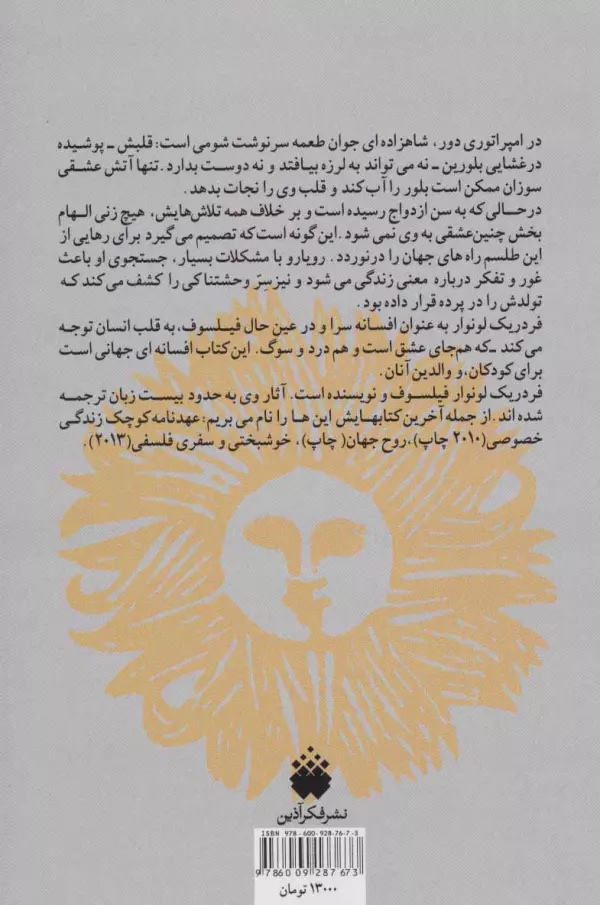 در امپراتوری دور، شاهزاده ای جوان طعمه سرنوشت شومی است: قلبش ـ پوشیده
درغشایی بلورین ـ نه می تواند به لرزه بیافتد و نه دوست بدارد.تنها آتش عشقی
سوزان ممکن است بلور را آب کند و قلب وی را نجات بدهد .
درحالی که به سن ازدواج رسیده است و بر خلاف همه تلاش‌هایش، هیچ زنی الهام
بخش چنین‌عشقی به وی نمی شود .این گونه است‌که تصمیم می گیرد برای رهایی از
این طلسم راه های جهان را درنوردد . رویارو با مشکلات بسیار، جستجوی او باعث
غور و تفکر درباره معنی زندگی می شود و نیزسِرّ وحشتناکی را کشف می‌کند که
تولدش را در پرده قرار داده بود .
فردریک لونوار به عنوان افسانه سرا و در عین حال فیلسوف، به قلب انسان توجه
می کند ـ‌که هم‌جای عشق است و هم درد و سوگ. این‌کتاب افسانه ای جهانی است
برای کودکان،و والدین آنان.
فردریک لونوار فیلسوف و نویسنده است. آثار وی به حدود بیست زبان ترجمه
شده اند .از جمله آخرین کتابهایش این ها را نام می بریم: عهدنامه کوچک زندگی
خصوصی(۲۰۱۰ چاپ)،روح جهان( چاپ)، خوشبختی و سفری فلسفی(۲۰۱۳).
نشرفکرآذین
ISBN 978-600-928-76-7-3
9 786009 287673
۱۳۰۰۰ تومان